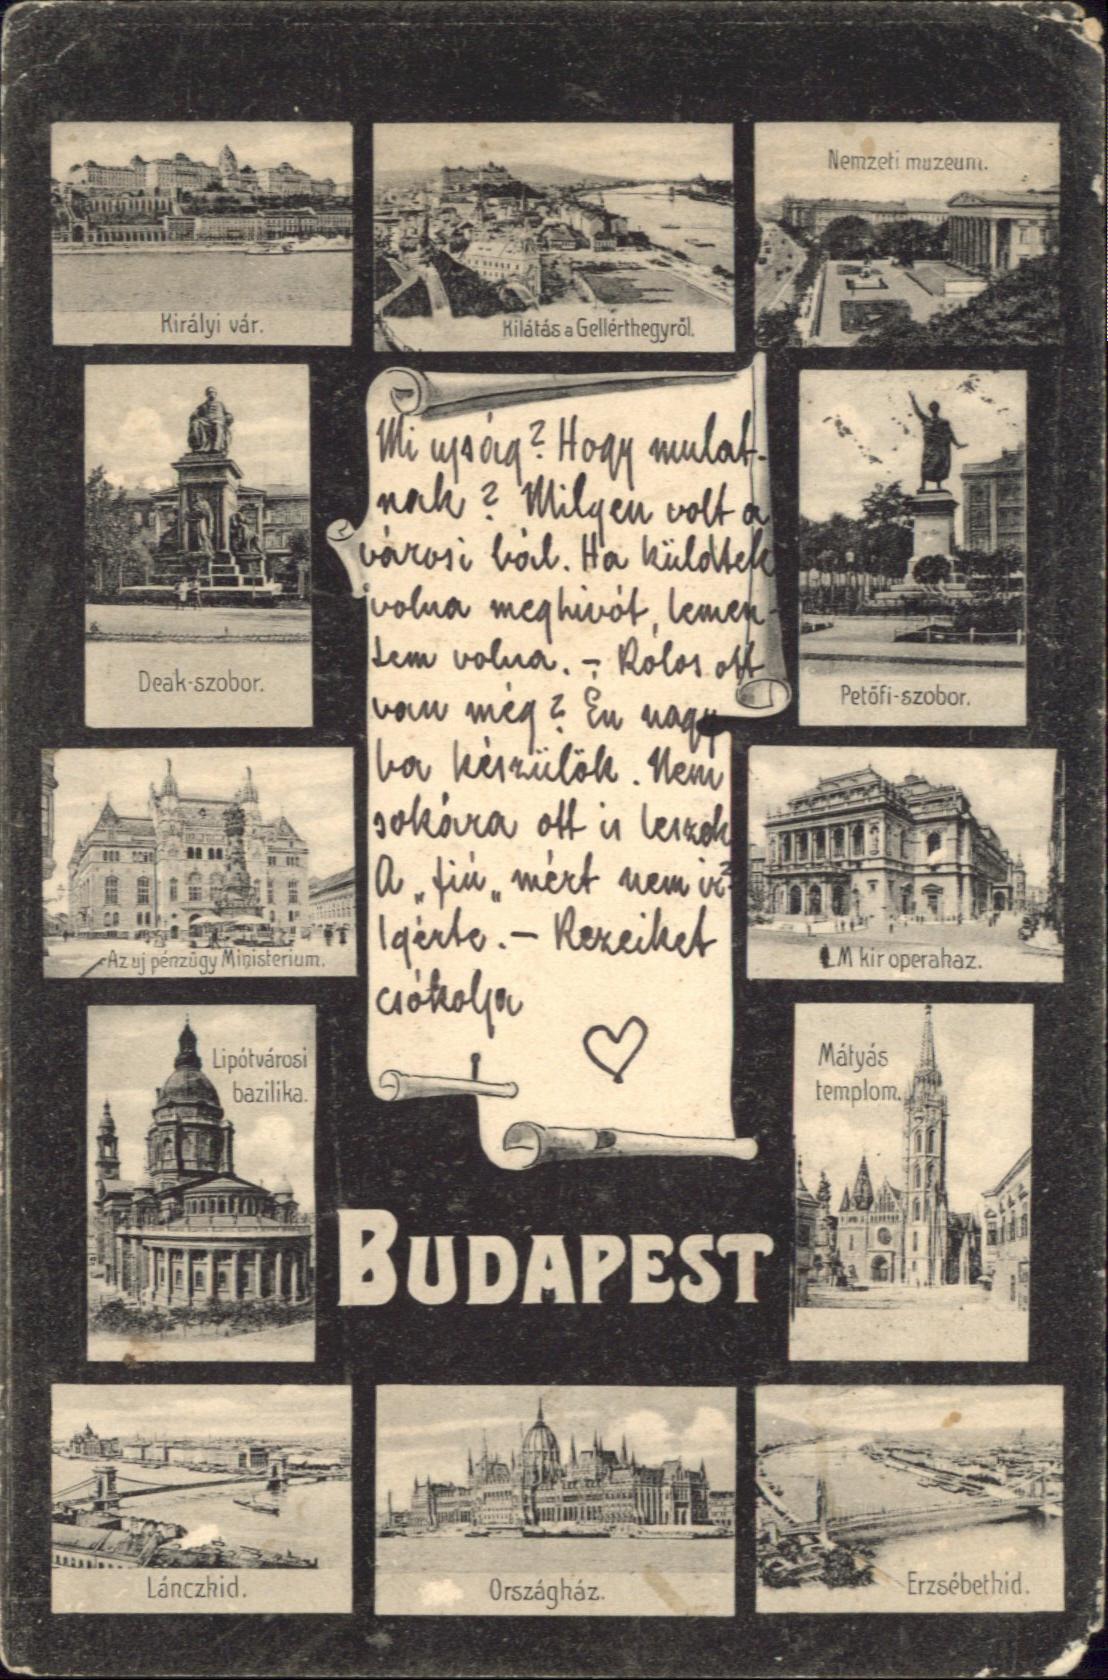 Királyi vár.
Kilátás a Gellérthegyről.
Nemzeti muzeum.
Deak-szobor.
Petőfi-szobor.
Mi ujság? Hogy mulat-
nak? Milyen volt a
városi bál. Ha küldtek
volna meghivót, lemen-
tem volna. – Rólos ott
van még? Én nagy
ba készülök. Nem
sokára ott is leszek
A „fiú„ mért nem ir?
Igérte. – Kezeiket
csókolja
Az uj pénzügy Ministerium.
M kir operahaz.
Lipótvárosi
bazilika.
Mátyás
templom.
BUDAPEST
Lánczhid.
Országház.
Erzsébethid.